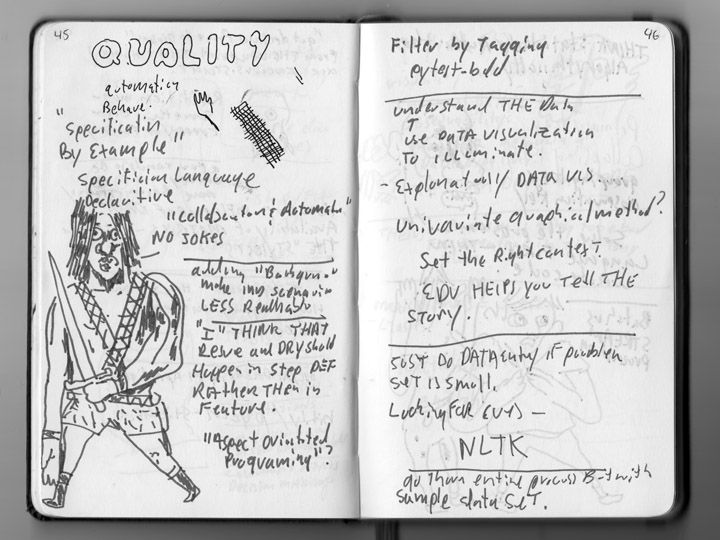 45
QUALITY
automatic
Behave.
"Specificatin
By Example"
Specificion Language
Declaritive
"Collaboration & Automate"
NO JOKES
adding "Backgroun"
make
LESS Readable
"I" THINK THAT
Resue and DRY should
Happen in step DEF
RATHER THEN in
Feature.
"Aspect Orintited
Programing"?
46
Filter by Tagging
pytest-bdd
understand THE data
use DATA VISUALIZATION
TO ILLUMINATE.
- Exploratory DATA VIS.
Univariate graphical method?
Set the Right context
EDV HELPS you Tell THE
STORY.
JUST DO DATA entry if problem
SET IS small.
Looking FOR
NLTK
go Then entire process But with
sample data SET.